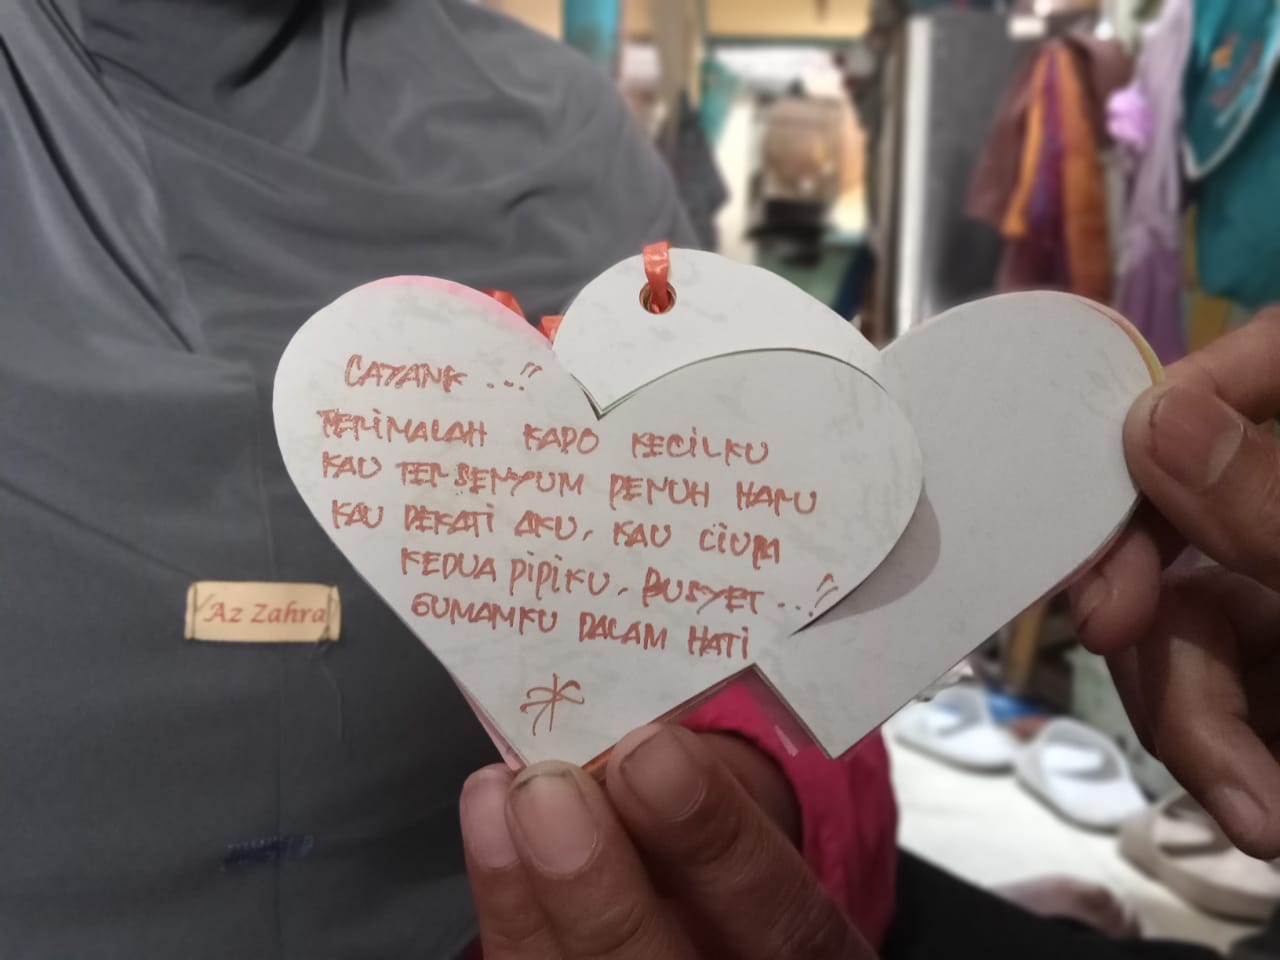 CAYANK ...!!
TERIMALAH KADO KECILKU
KAU TERSENYUM PENUH HARU
KAU DEKATI AKU, KAU CIUM
KEDUA PIPIKU, BUSYET ...!!
GUMAMKU DALAM HATI
Az Zahra